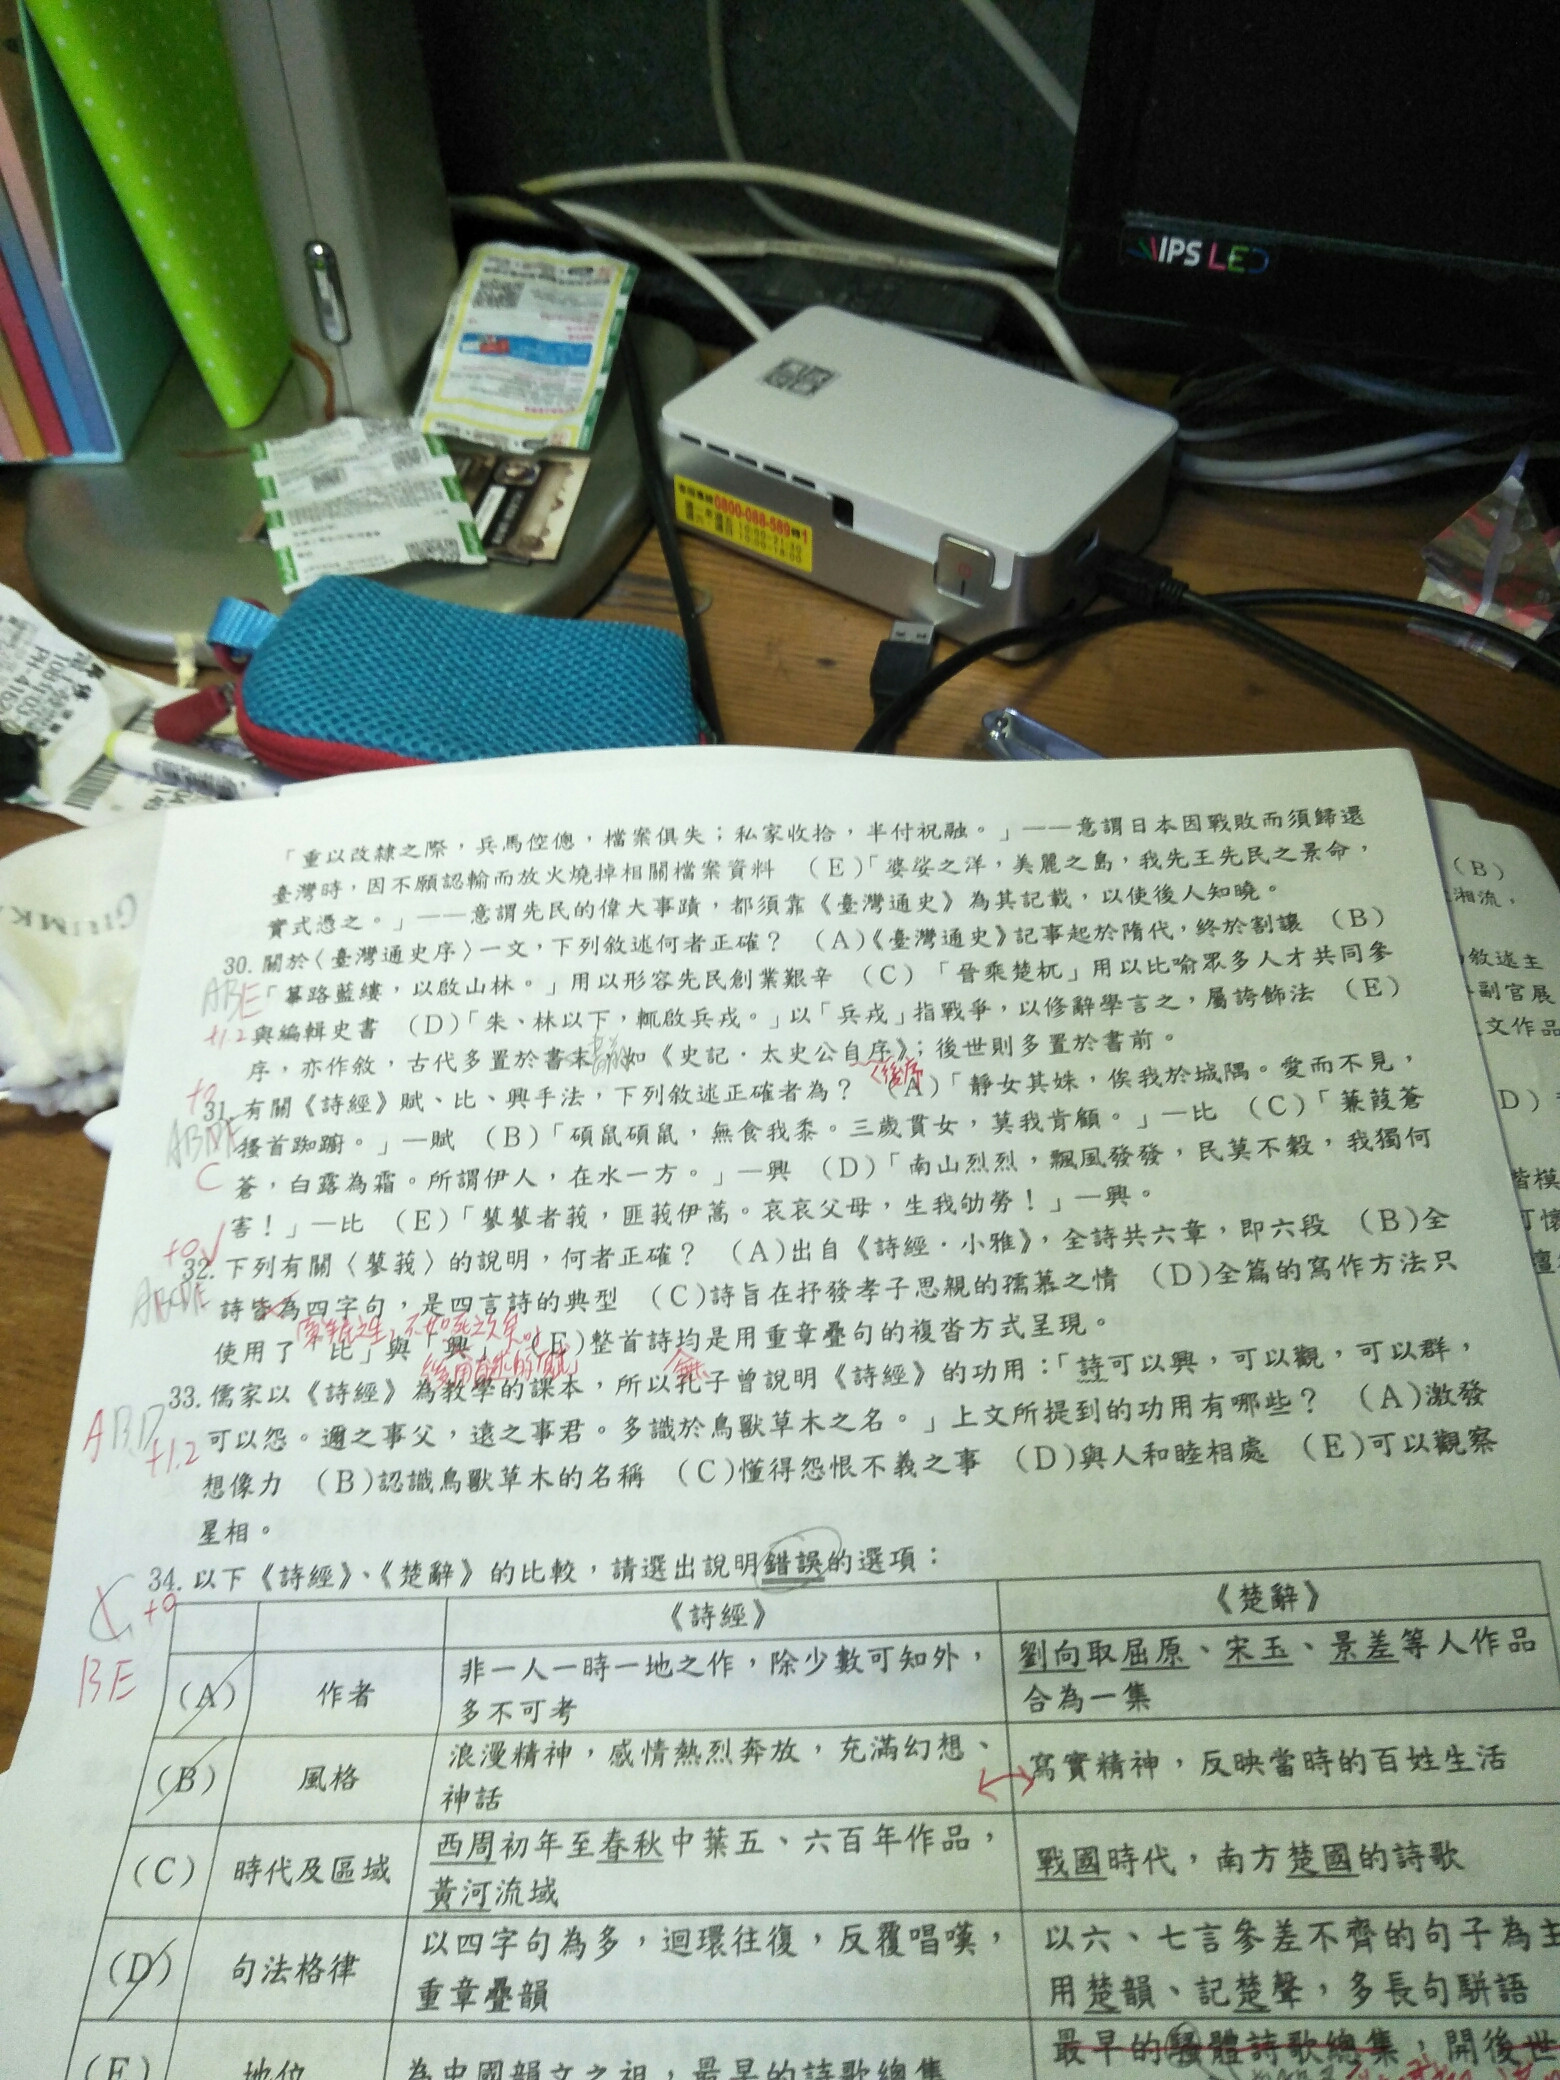 IPS LED
0800-088-589轉1
「重以改隸之際，兵馬倥傯，檔案俱失；私家收拾，半付祝融。」——意謂日本因戰敗而須歸還
臺灣時，因不願認輸而放火燒掉相關檔案資料　(E)「婆娑之洋，美麗之島，我先王先民之景命，
實式憑之。」——意謂先民的偉大事蹟，都須靠《臺灣通史》為其記載，以使後人知曉。
30. 關於〈臺灣通史序〉一文，下列敘述何者正確？　(A)《臺灣通史》記事起於隋代，終於割讓　(B)
ABE「篳路藍縷，以啟山林。」用以形容先民創業艱辛　(C)「晉乘楚杌」用以比喻眾多人才共同參
+1.2與編輯史書　(D)「朱、林以下，輒啟兵戎。」以「兵戎」指戰爭，以修辭學言之，屬誇飾法　(E)
序，亦作敘，古代多置於書末，如《史記．太史公自序》；後世則多置於書前。
31. 有關《詩經》賦、比、興手法，下列敘述正確者為？　(A)「靜女其姝，俟我於城隅。愛而不見，
搔首踟躕。」—賦　(B)「碩鼠碩鼠，無食我黍。三歲貫女，莫我肯顧。」—比　(C)「蒹葭蒼
C
蒼，白露為霜。所謂伊人，在水一方。」—興　(D)「南山烈烈，飄風發發，民莫不穀，我獨何
害！」—比　(E)「蓼蓼者莪，匪莪伊蒿。哀哀父母，生我劬勞！」—興。
32. 下列有關〈蓼莪〉的說明，何者正確？　(A)出自《詩經．小雅》，全詩共六章，即六段　(B)全
詩皆為四字句，是四言詩的典型　(C)詩旨在抒發孝子思親的孺慕之情　(D)全篇的寫作方法只
使用了「比」與「興」　(E)整首詩均是用重章疊句的複沓方式呈現。
33. 儒家以《詩經》為教學的課本，所以孔子曾說明《詩經》的功用：「詩可以興，可以觀，可以群，
ABD
+1.2
可以怨。邇之事父，遠之事君。多識於鳥獸草木之名。」上文所提到的功用有哪些？　(A)激發
想像力　(B)認識鳥獸草木的名稱　(C)懂得怨恨不義之事　(D)與人和睦相處　(E)可以觀察
星相。
34. 以下《詩經》、《楚辭》的比較，請選出說明錯誤的選項：
+0
BE
《詩經》　《楚辭》
(A)　作者　非一人一時一地之作，除少數可知外，　劉向取屈原、宋玉、景差等人作品
多不可考　合為一集
(B)　風格　浪漫精神，感情熱烈奔放，充滿幻想、　寫實精神，反映當時的百姓生活
神話
(C)　時代及區域　西周初年至春秋中葉五、六百年作品，　戰國時代，南方楚國的詩歌
黃河流域
(D)　句法格律　以四字句為多，迴環往復，反覆唱嘆，　以六、七言參差不齊的句子為主
重章疊韻　用楚韻、記楚聲，多長句駢語
(E)　地位　為中國韻文之祖，最早的詩歌總集　最早的騷體詩歌總集，開後世
(B)
湘流，
敘述主
副官展
文作品
D)